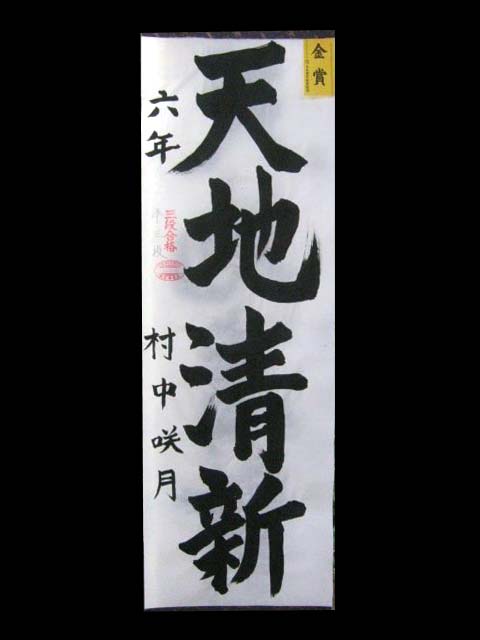 金賞
天地清新
六年 村中咲月
三段合格
準三段